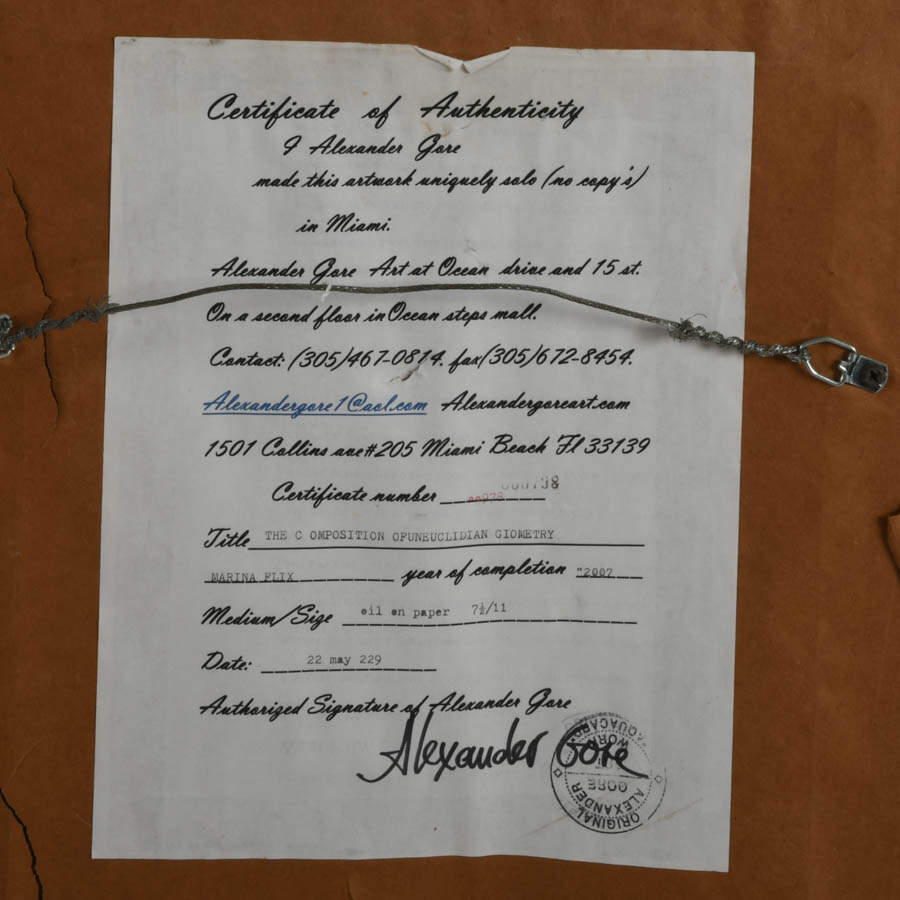 Certificate of Authenticity
I Alexander Gore
made this artwork uniquely solo (no copy's)
in Miami.
Alexander Gore Art at Ocean drive and 15 st.
On a second floor in Ocean steps mall.
Contact: (305)467-0814. fax(305)672-8454.
Alexandergore1@aol.com Alexandergoreart.com
1501 Collins ave#205 Miami Beach Fl 33139
Certificate number
Title THE C OMPOSITION OFUNEUCLIDIAN GIOMETRY
MARINA FLIX year of completion "2007
Medium/Size oil on paper 7½/11
Date: 22 may 229
Authorized Signature of Alexander Gore
Alexander Gore
ORIGINAL ALEXANDER GORE WORK